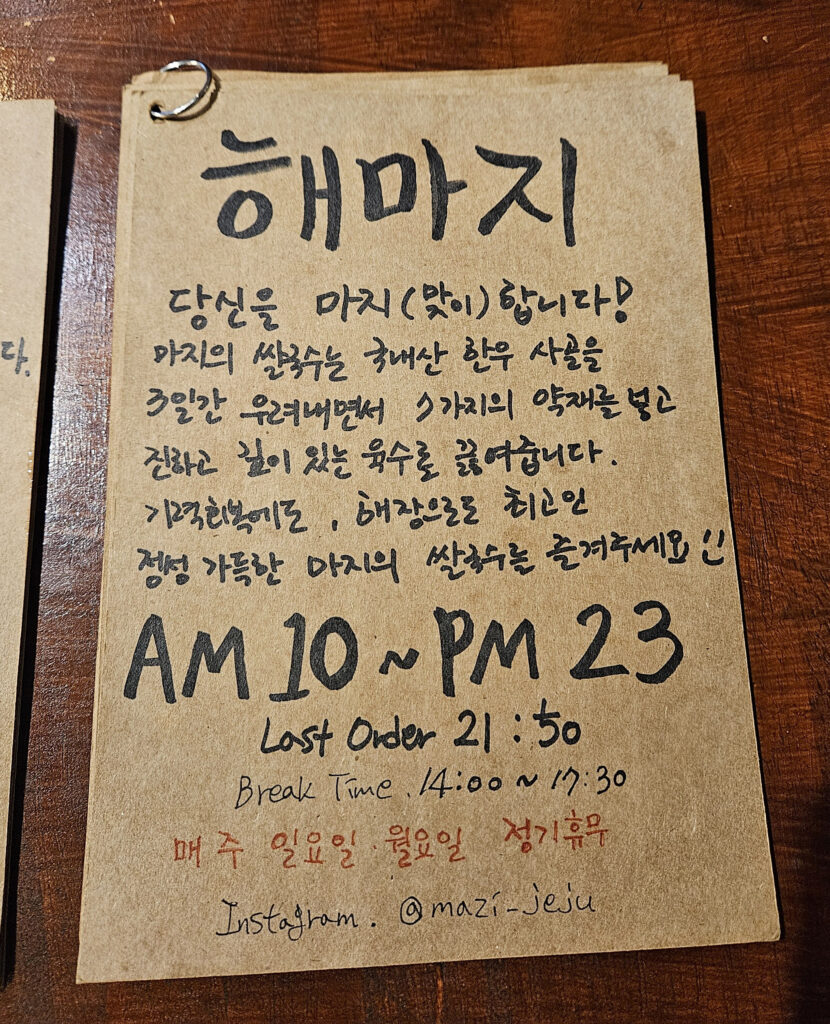 해마지
당신을 마지(맞이)합니다!
마지의 쌀국수는 국내산 한우 사골을
3일간 우려내면서 7가지의 약재를 넣고
진하고 깊이 있는 육수로 끓여줍니다.
기력회복에도, 해장으로도 최고인
정성 가득한 마지의 쌀국수를 즐겨주세요 !!
AM 10 ~ PM 23
Last Order 21:50
Break Time. 14:00 ~ 17:30
매주 일요일 월요일 정기휴무
Instagram. @mazi_jeju
다.